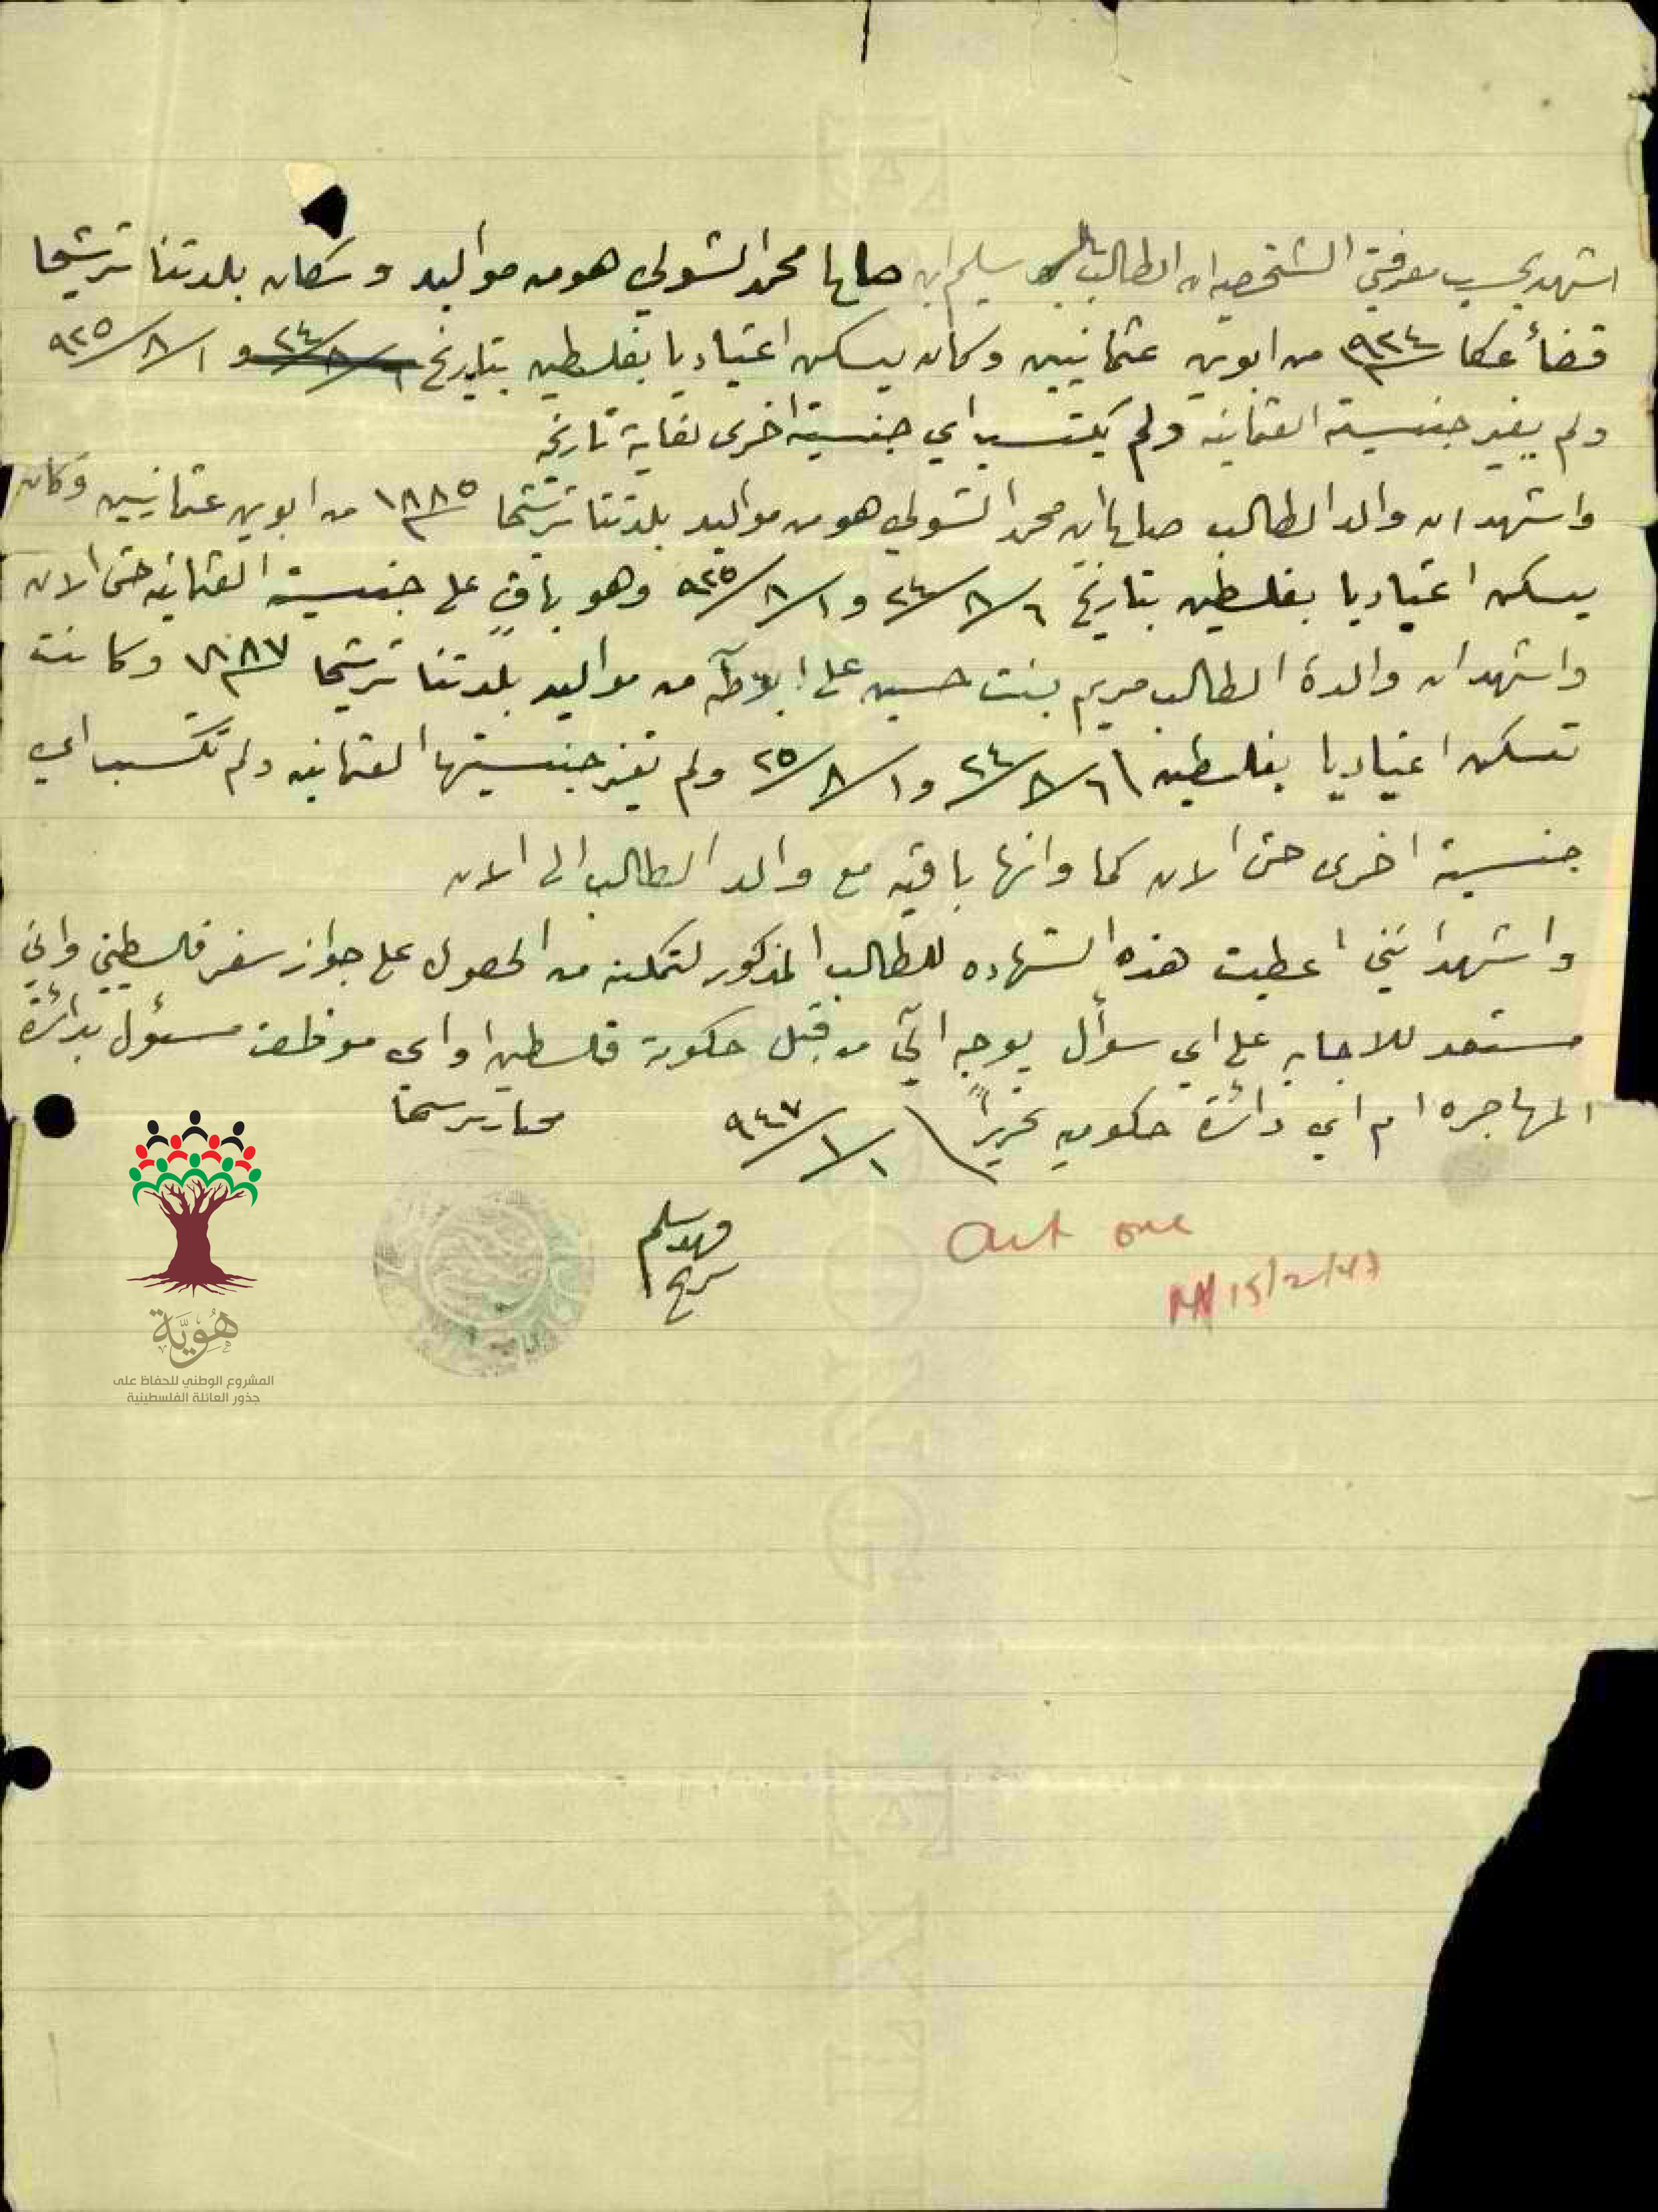 اشهد بحسب معرفتي الشخصيه ان الطالب سليم ابن صالح محمد الشولي هو من مواليد و سكان بلدتنا ترشيحا
قضأ عكا ٩٢٤ من ابوين عثمانيين وكان يسكن اعتياديا بفلسطين بتاريخ ٦/٨/٢٤ و ١/٨/٩٢٥
ولم يغير جنسيته العثمانيه ولم يكتسب اي جنسية اخرى لغاية تاريخه
واشهد ان والد الطالب صالح ابن محمد الشولي هو من مواليد بلدتنا ترشيحا ١٨٨٥ من ابوين عثمانيين وكان
يسكن اعتياديا بفلسطين بتاريخ ٦/٨/٢٤ و ١/٨/٩٢٥ وهو باقٍ على جنسيته العثمانيه حتى الان
واشهد ان والدة الطالب مريم بنت حسين علي من مواليد بلدتنا ترشيحا ١٨٨٧ وكانت
تسكن اعتياديا بفلسطين \ ٦/٨/٢٤ و ١/٨/٢٥ ولم تغير جنسيتها العثمانيه ولم تكتسب اي
جنسية اخرى حتى الان كما وانها باقيه مع والد الطالب الى الان
واشهد انني اعطيت هذه الشهاده للطالب المذكور لتمكنه من الحصول على جواز سفر فلسطيني واني
مستعد للاجابه على اي سوأل يوجه اليّ من قِبل حكومة فلسطين او اي موظف مسئول بدائرة
المهاجره ام اي دائرة حكوميه تحريراً \ ١/١/٩٤٧ مختار ترشيحا
فهد سليم
سريح
Art one
15/2/47
هُوِيَّة
المشروع الوطني للحفاظ على
جذور العائلة الفلسطينية